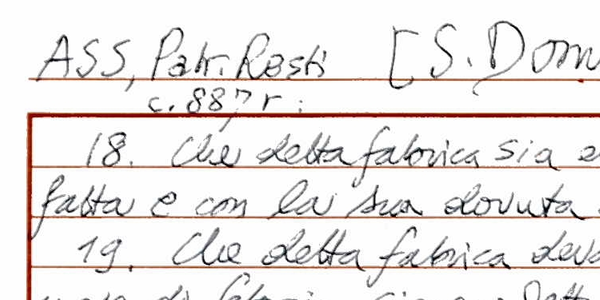 ASS, Patr. Resti [S. Dom
c. 887 r :
18. Che detta fabrica sia e
fatta e con la sua dovuta
19. Che detta fabrica deva
di fabrica sia